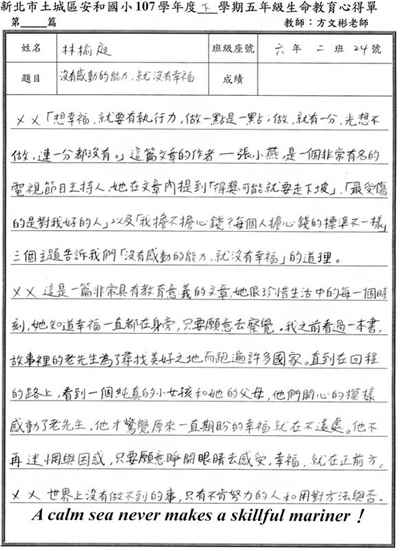 新北市土城區安和國小 107 學年度 下 學期五年級生命教育心得單
第____篇 教師：方文彬老師
姓名 林榆庭 班級座號 六年二班24號
題目 沒有感動的能力,就沒有幸福 成績
ㄨㄨ「想幸福,就要有執行力,做一點是一點。做,就有一分,光想不
做,連一分都沒有。」這篇文章的作者—張小燕,是一個非常有名的
電視節目主持人,她在文章內提到「得獎可能就要走下坡」、「最受傷
的是對我好的人」以及「我擔不擔心錢?每個人擔心錢的標準不一樣」
三個主題告訴我們「沒有感動的能力,就沒有幸福」的道理。
ㄨㄨ這是一篇非常具有教育意義的文章,她很珍惜生活中的每一個時
刻,她知道幸福一直都在身旁,只要願意去察覺。我之前看過一本書,
故事裡的老先生為了尋找美好之地,而跑遍許多國家。直到在回程
的路上,看到一個純真的小女孩和她的父母,他們開心的模樣
感動了老先生,他才驚覺原來一直期盼的幸福就在不遠處。他不
再迷惘與困惑,只要願意睜開眼睛去感受,幸福,就在正前方。
ㄨㄨ世界上沒有做不到的事,只有不肯努力的人和用對方法與否。
A calm sea never makes a skillful mariner！